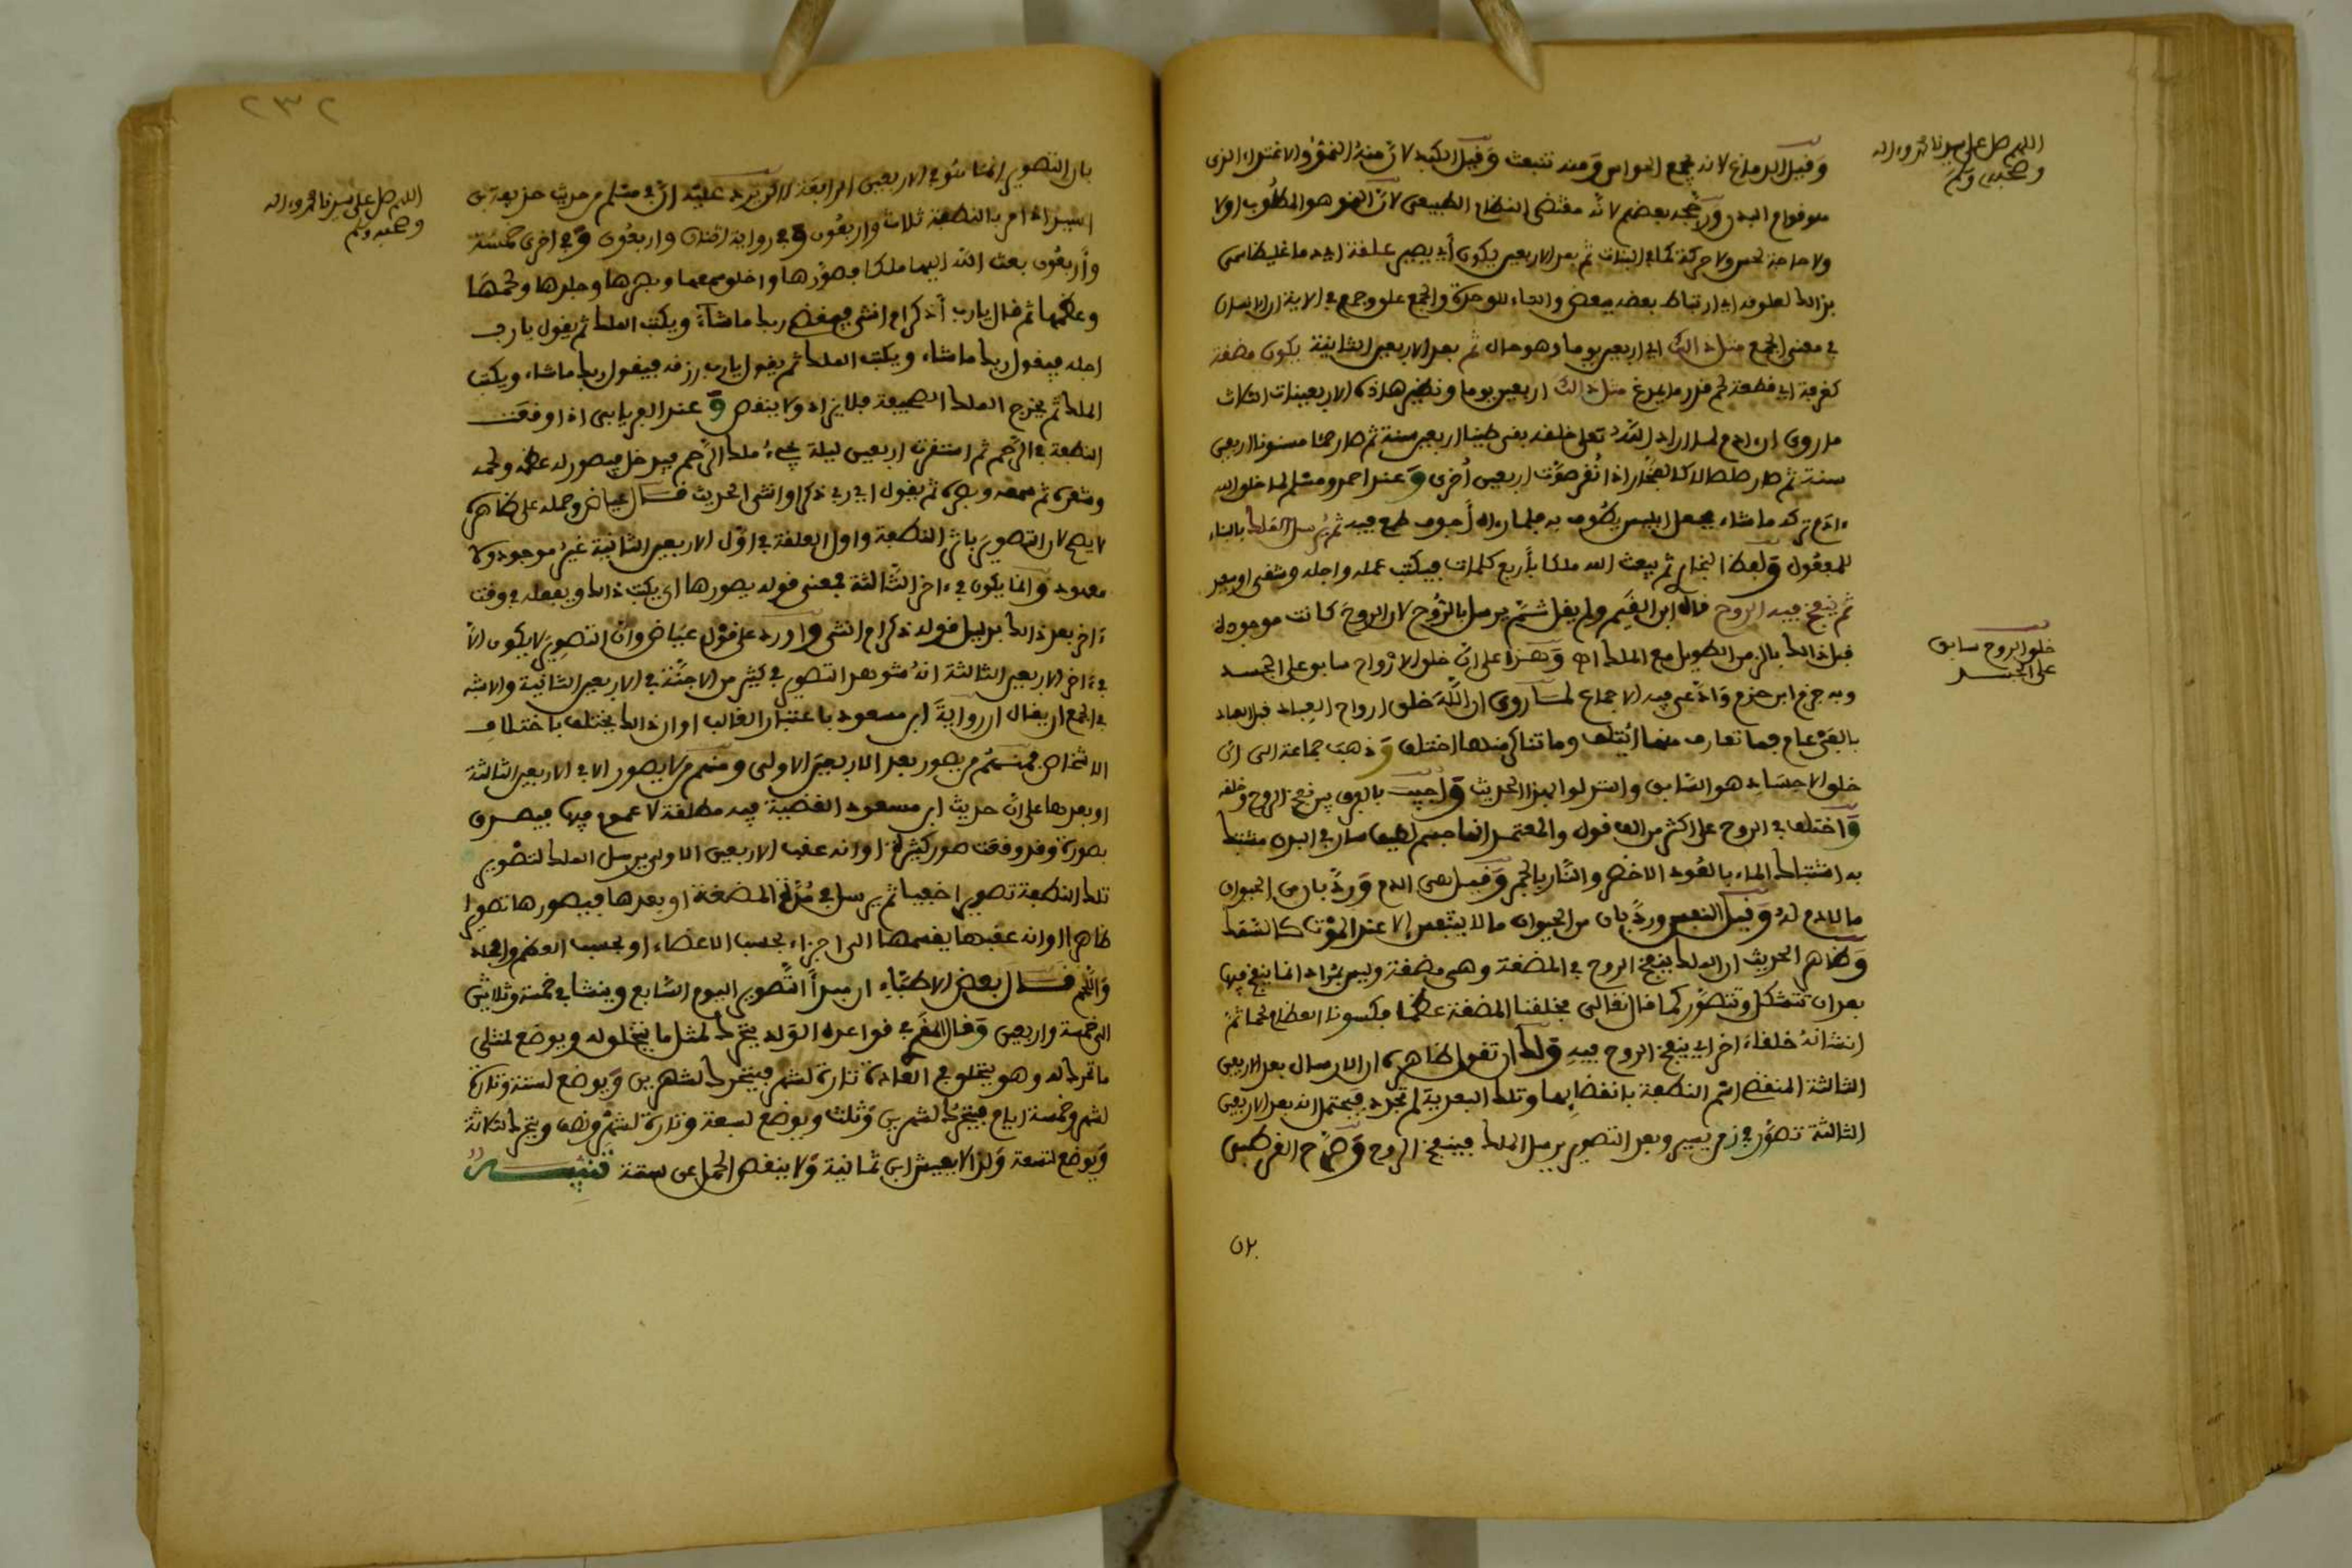 اللهم صل على سيدنا محمد وءاله
وصحبه وسلم
وقيل الدماغ لانه مجمع الحواس ومنه تنبعث وقيل الكبد لان منه النمو والاغتذاء الذى
هو قوام البدن ورجحه بعضهم لانه مقتضى النظام الطبيعى لان النمو هو المطلوب اولا
ولا حاجة لحس ولا حركة كما في النبات ثم بعد الاربعين يكون أي يصير علقة اي دما غليظا سمى
بذالك لعلوقه اي ارتباط بعضه ببعض والتاء للوحدة والجمع علق وجمع في الاية ان الانسان
في معنى الجمع مثل ذالك اي اربعين يوما وهو حال ثم بعد الاربعين الثانية يكون مضغة
كغرفة اي قطعة لحم قدر ما يمضغ مثل ذالك اربعين يوما ونظير هذه الاربعينات الثلاث
ما روى ان ءادم لما اراد الله تعلى خلقه بقى طينا اربعين سنة ثم صار حمأ مسنونا اربعين
سنة ثم صار صلصالا كالفخار اذا نقر صوت اربعين أخرى وعند احمد ومسلم لما خلق الله
ءادم تركه ما شاء فجعل ابليس يطوف به فلما رءاه أجوف طمع فيه ثم يرسل الملك بالبناء
للمفعول ولفظ البخارى ثم يبعث الله ملكا بأربع كلمات فيكتب عمله واجله وشقى او سعيد
ثم ينفخ فيه الروح قال ابن القيم ولم يقل ثم يرسل بالروح لان الروح كانت موجودة
قبل ذالك بالزمن الطويل مع الملك اه وهذا على ان خلق الارواح سابق على الجسد
خلق الروح سابق
على الجسد
وبه جزم ابن حزم وادعى فيه الاجماع لما روى ان الله خلق ارواح العباد قبل العباد
بالفى عام فما تعارف منها ائتلف وما تناكر منها اختلف وذهب جماعة الى ان
خلق الاجساد هو السابق واستدلوا بهذا الحديث واجيب بالفرق بين نفخ الروح وخلقه
واختلف في الروح على اكثر من الف قول والمعتمد انها جسم لطيف سار في البدن مشتبك
به اشتباك الماء بالعود الاخضر والنار بالجمر وقيل هى الدم ورد بان من الحيوان
ما لا دم له وقيل النفس ورد بان من الحيوان ما لا يتنفس الا عند الموت كالسمك
وظاهر الحديث ان الملك ينفخ الروح في المضغة وهى مضغة وليس بمراد انما ينفخ فيها
بعد ان تتشكل وتتصور كما قال تعالى فخلقنا المضغة عظما فكسونا العظام لحما ثم
انشانه خلقا ءاخر اي ينفخ الروح فيه ولك ان تقول ظاهره ان الارسال بعد الاربعين
الثالثة المنقضى اسم النطفة بانقضايها وتلك البعدية لم تحد فيحتمل انه بعد الاربعين
الثالثة تصور في زمن يسير وبعد التصوير يرسل الملك فينفخ الروح وصرح القرطبى
بان
٢٣٢
اللهم صل على سيدنا محمد وءاله
وصحبه وسلم
بان التصوير انما يكون في الاربعين الرابعة لاكن يرد عليه ان في مسلم من حديث حذيفة بن
اسيد اذا مر بالنطفة ثلاث واربعون وفي رواية اثنان واربعون وفي اخرى خمسة
وأربعون بعث الله اليها ملكا فصورها وخلق سمعها وبصرها وجلدها ولحمها
وعظمها ثم قال يارب أذكر ام انثى فيقضى ربك ما شاء ويكتب الملك ثم يقول يارب
اجله فيقول ربك ما شاء ويكتب الملك ثم يقول يارب رزقه فيقول ربك ما شاء ويكتب
الملك ثم يخرج الملك الصحيفة فلا يزاد ولا ينقص وعند الفريابى اذا وقعت
النطفة في الرحم ثم استقرت اربعين ليلة يجىء ملك الرحم فيدخل فيصور له عظمه ولحمه
وشعره ثم سمعه وبصره ثم يقول اي رب ذكر او انثى الحديث قال عياض وحمله على ظاهره
لا يصح لان التصوير باثر النطفة واول العلقة في اول الاربعين الثانية غير موجود ولا
معهود وانما يكون في ءاخر الثالثة فمعنى قوله يصورها اى يكتب ذالك ويفعله في وقت
ءاخر بعد ذالك بدليل قوله ذكر ام انثى واورد على قول عياض وان التصوير لا يكون الا
في ءاخر الاربعين الثالثة انه شوهد التصوير في كثير من الاجنة في الاربعين الثانية والاشبه
في الجمع ان يقال ان رواية ابن مسعود باعتبار الغالب او ان ذالك يختلف باختلاف
الاشخاص فمنهم من يصور بعد الاربعين الاولى ومنهم من لا يصور الا في الاربعين الثالثة
او بعدها على ان حديث ابن مسعود القضية فيه مطلقة لا عموم فيها فيصدق
بصورة وقد وقعت صور كثيرة او انه عقب الاربعين الاولى يرسل الملك لتصوير
تلك النطفة تصويرا خفيا ثم يرسل في مدة المضغة او بعدها فيصورها تصويرا
ظاهرا او انه عقبها يقسمها الى اجزاء بحسب الاعضاء او بحسب العظم والجلد
واللحم قال بعض الاطباء ان مبدأ التصوير اليوم السابع وينشا في خمسة وثلاثين
الى خمسة واربعين وقال المقرى في قواعده الولد يتحرك لمثل ما يتخلق له ويوضع لمثلى
ما تحرك له وهو يتخلق في العادة تارة لشهر فيتحرك لشهرين ويوضع لستة وتارة
لشهر وخمسة ايام فيتحرك لشهرين وثلث ويوضع لسبعة وتارة لشهر ونصف ويتحرك لثلاثة
ويوضع لتسعة ولذا لا يعيش ابن ثمانية ولا ينقص الحمل عن ستة تنبيه